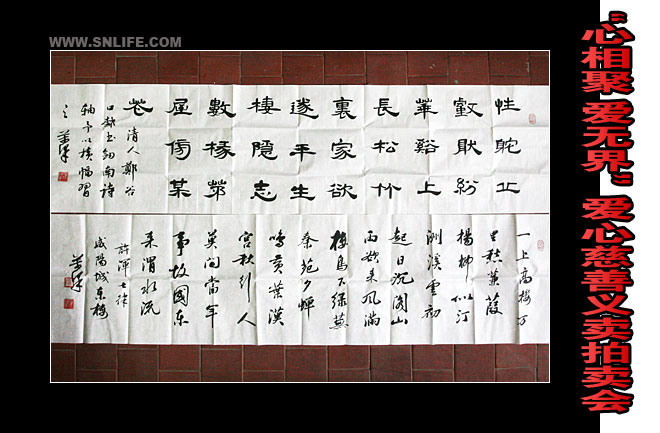 WWW.SNLIFE.COM
“心相聚 爱无界”爱心慈善义卖拍卖会
性耽丘
壑厭紛
華谿上
長松竹
裏家欲
遂平生
棲隱志
數椽茅
屋傍某
花
清人鄭谷
口 南詩
軸予以横幅習
之
一上高樓万
里愁蒹葭
楊柳似汀
洲溪雲初
起日沉閣山
雨欲来風滿
樓鳥下綠蕪
秦苑夕蟬
鳴黄葉漢
宫秋行人
莫問當年
事故國東
来渭水流
許渾七律
咸陽城東樓